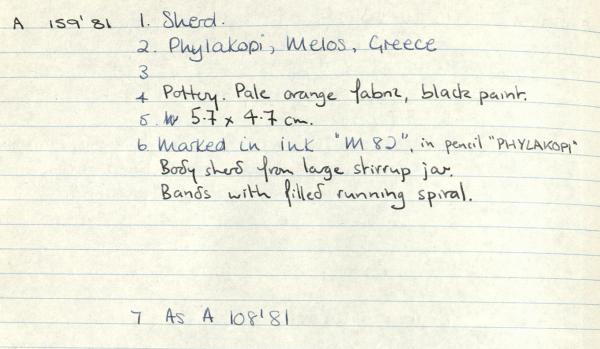 A 159'81 1. Sherd.
2. Phylakopi, Melos, Greece
3
4 Pottery. Pale orange fabric, black paint.
5. 5.7 x 4.7 cm.
6 Marked in ink "M82", in pencil "PHYLAKOPI"
Body sherd from large stirrup jar.
Bands with filled running spiral.
7 As A 108'81